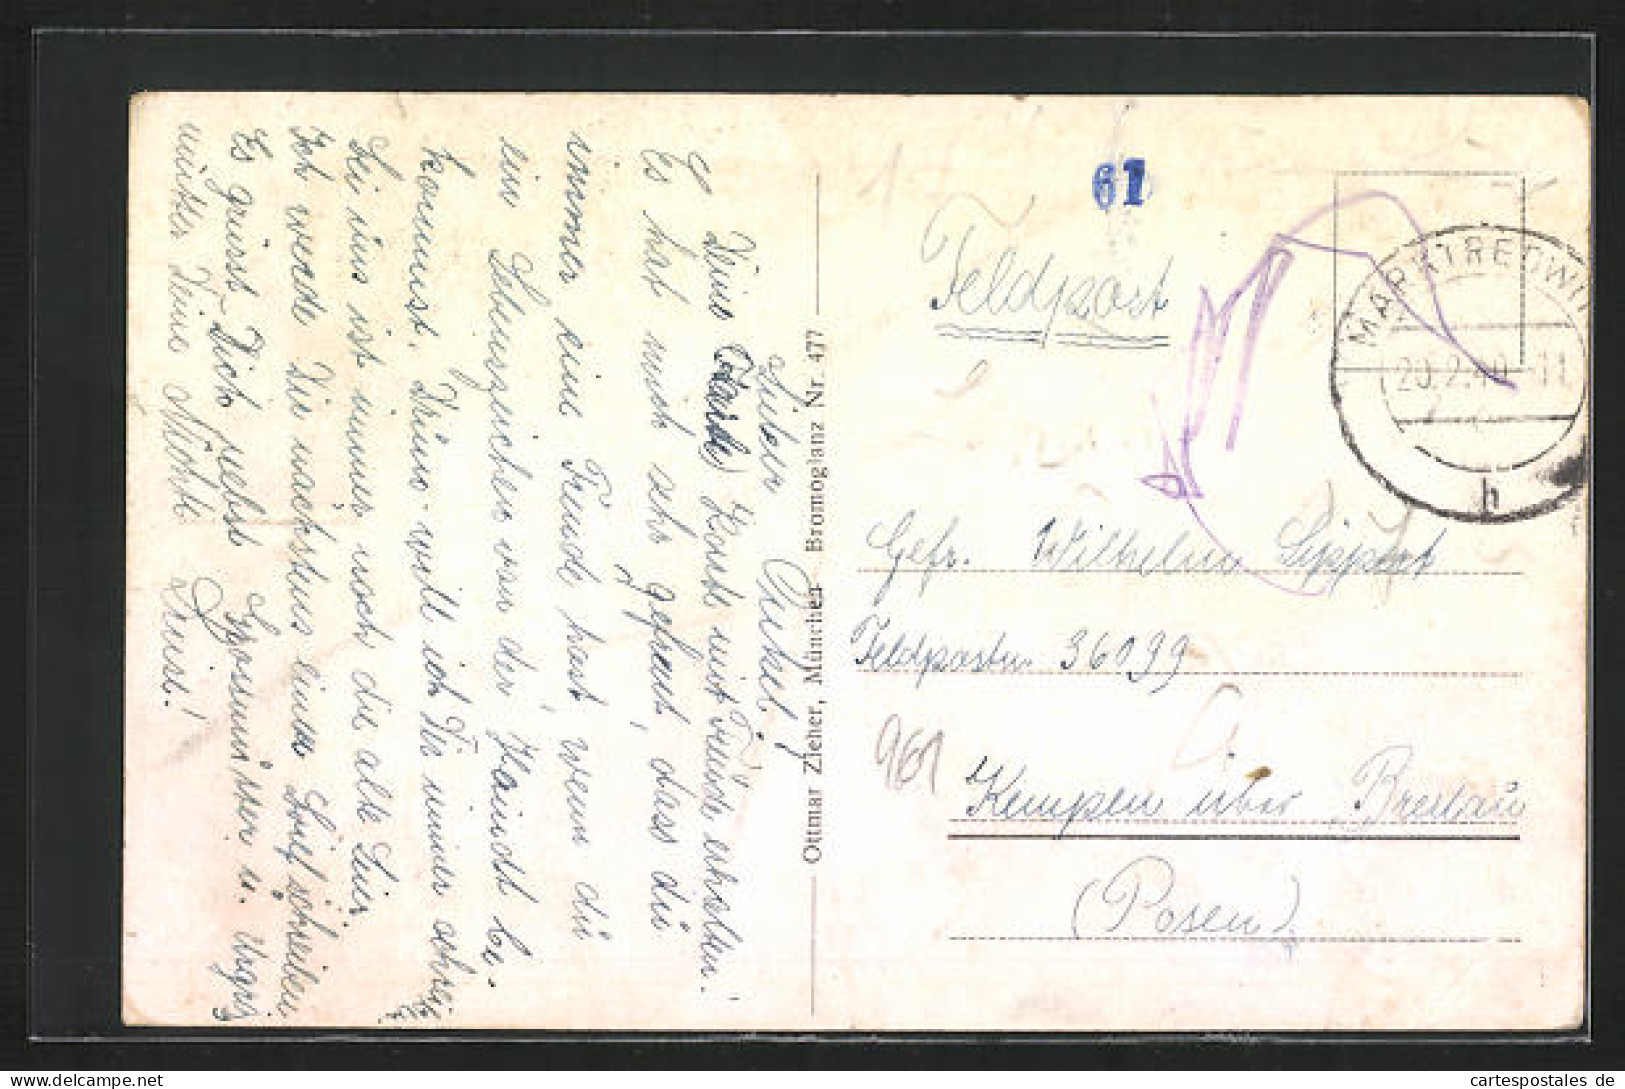 Lieber Onkel!
Deine Karte konnte mit Freude erhalten.
Es hat mich sehr gefreut, dass du
immer eine Freude hast, wenn du
ein Lebenszeichen von der Heimat be-
kommst. Drum will ich Dir immer schrei-
Bei uns ist immer noch die alte Leier
Ich werde Dir nächstens einen Brief schreiben
Es grüsst Dich nebst Grossmutter u.
Deine Nichte
Ottmar Zieher, München Bromoglanz Nr. 477
61
Feldpost
MARKTREDWI
20.2.40.-11
b
Gefr. Wilhelm Lippert
Feldpostn. 36099
961
Kempen über Breslau
(Posen)
cartespostales de